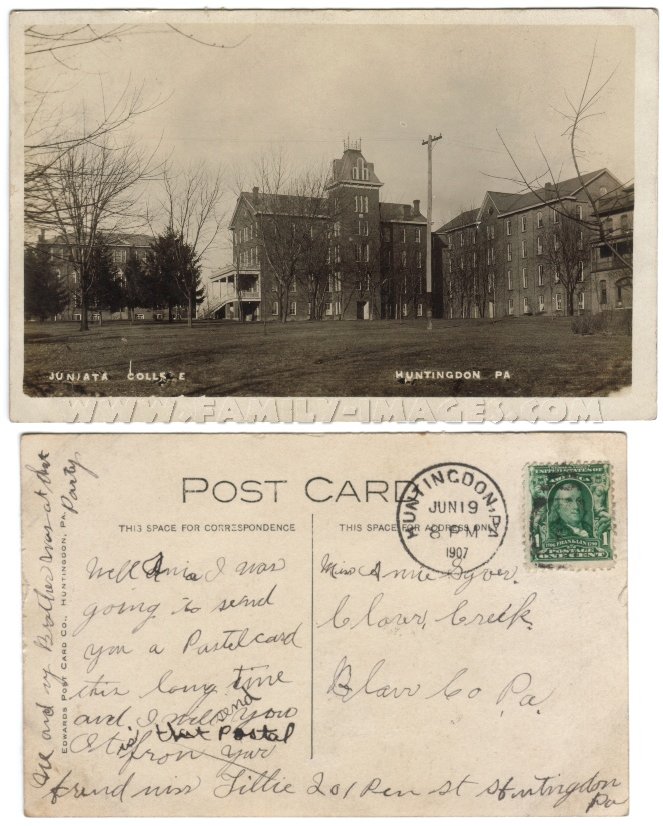 JUNIATA COLLEGE
HUNTINGDON PA
WWW.FAMILY-IMAGES.COM
POST CARD
THIS SPACE FOR CORRESPONDENCE
THIS SPACE FOR ADDRESS ONLY
HUNTINGDON, PA.
JUN 19
8 PM
1907
UNITED STATES OF AMERICA
FRANKLIN
POSTAGE
1
ONE CENT
EDWARDS POST CARD CO., HUNTINGDON, PA.
Me and my Brother was at that
Party
Well Ania I was
going to send
you a Postelcard
this long time
and I will send you
that Postal
from your
friend miss Tillie 201 Pen st Huntingdon
Pa
Miss Annie
Clover Creek
Blair Co Pa.